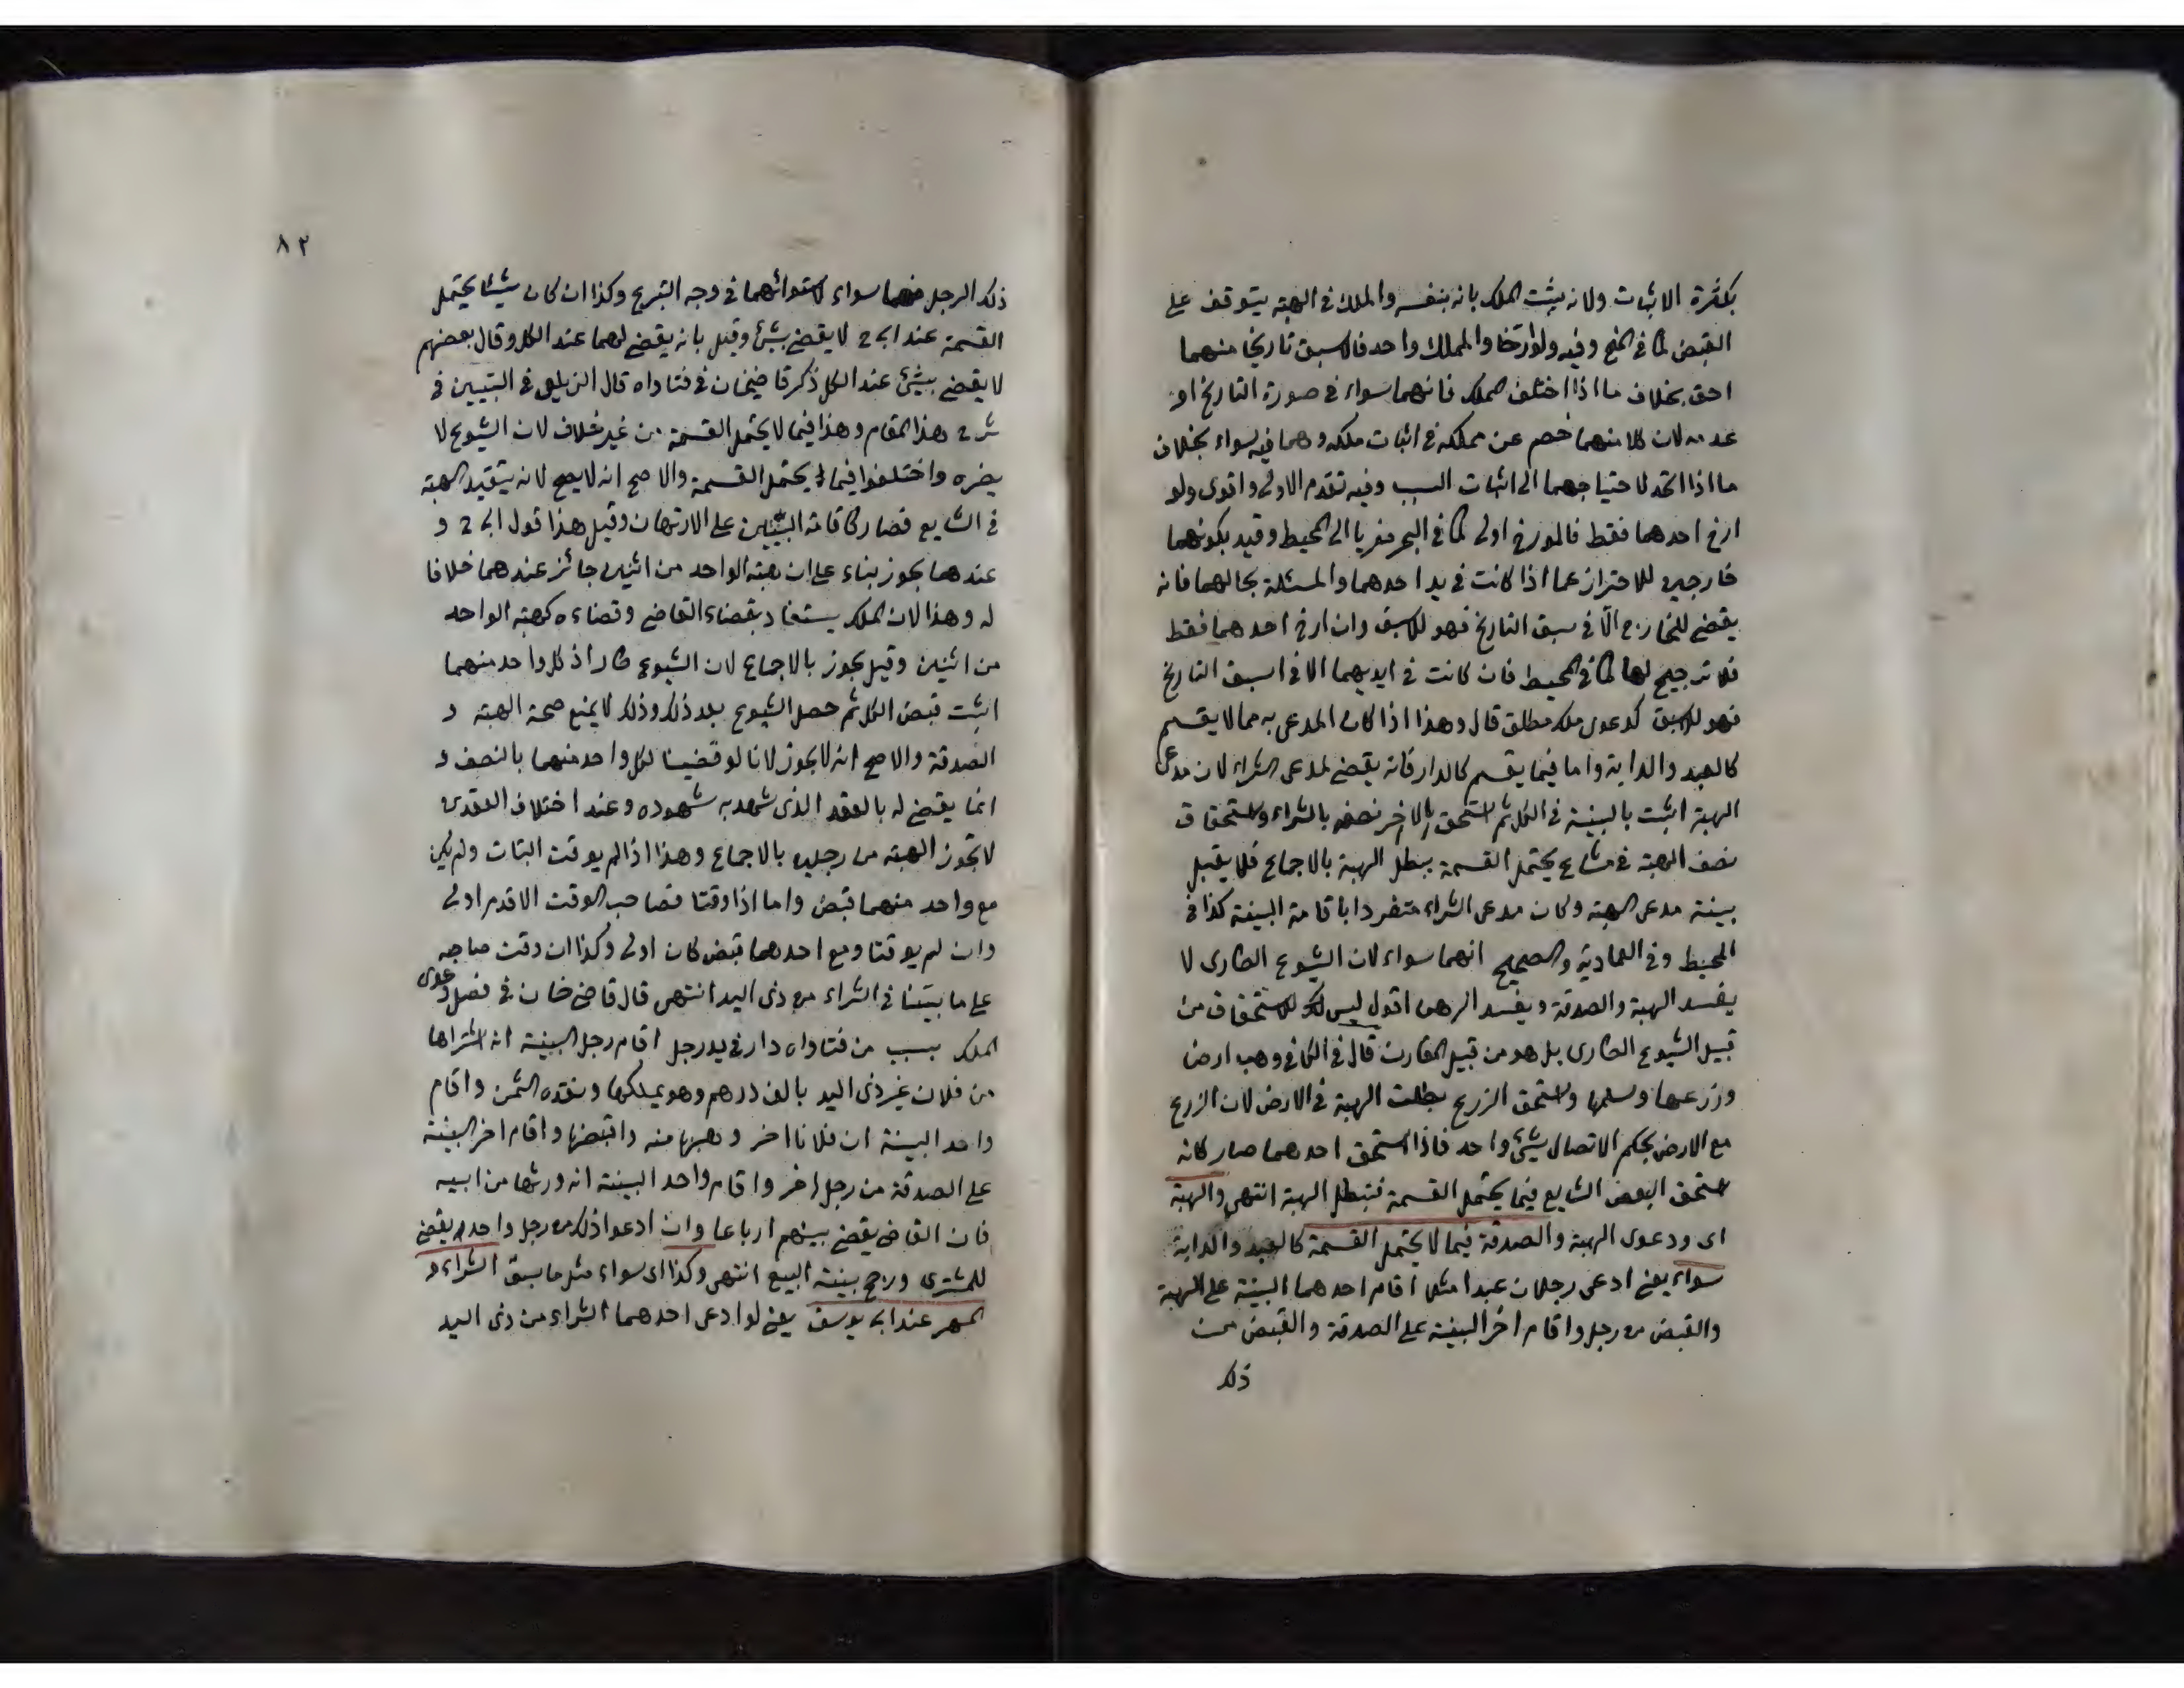 بكثرة الاثبات ولانه يثبت الملك بانه بنفسه والملك في الهبة يتوقف على
القبض كما في المنح وفيه ولو ارخا والمملك واحد فالاسبق تاريخا منهما
احق بخلاف ما اذا اختلف المملك فانهما سواء في صورة التاريخ او
عدمه لان كلا منهما خصم عن مملكه في اثبات ملكه وهما فيه سواء بخلاف
ما اذا اتحد لاحتياجهما الى اثبات السبب وفيه تقدم الاولى واقوى ولو
ارخ احدهما فقط فالمورخ اولى كما في البحر معزيا الى المحيط وقيد بكونهما
خارجين للاحتراز عما اذا كانت في يد احدهما والمسئلة بحالهما فانه
يقضى للخارج الا في سبق التاريخ فهو للاسبق وان ارخ احدهما فقط
فلا ترجيح لها كما في المحيط فان كانت في ايديهما الا في اسبق التاريخ
فهو للاسبق كدعوى ملك مطلق قال وهذا اذا كان المدعى به مما لا يقسم
كالعبد والدابة واما فيما يقسم كالدار فانه يقضى لمدعى الشراء لان مدعى
الهبة اثبت بالبينة في الكل ثم استحق الاخر نصفه بالشراء واستحقاق
نصف الهبة في مشاع يحتمل القسمة يبطل الهبة بالاجماع فلا يقبل
بينة مدعى الهبة وكان مدعى الشراء متفردا باقامة البينة كذا في
المحيط وفي العمادية والصحيح انهما سواء لان الشيوع الطارى لا
يفسد الهبة والصدقة ويفسد الرهن اقول ليس الاستحقاق من
قبيل الشيوع الطارى بل هو من قبيل المقارن قال في الكافي وهب ارض
وزرعها وسلمها واستحق الزرع بطلت الهبة في الارض لان الزرع
مع الارض بحكم الاتصال شيئ واحد فاذا استحق احدهما صار كانه
استحق البعض الشايع فيما يحتمل القسمة فتبطل الهبة انتهى والهبة
اى ودعوى الهبة والصدقة فيما لا يحتمل القسمة كالعبد والدابة
سواء يعنى ادعى رجلان عبدا مثلا اقام احدهما البينة على الهبة
والقبض من رجل واقام اخر البينة على الصدقة والقبض من
ذلك
٨٢
ذلك الرجل فهما سواء لاستوائهما في وجه التبرع وكذا ان كان شيئا يحتمل
القسمة عند ابى ح لا يقضى بشيئ وقيل بانه يقضى لهما عند الكل وقال بعضهم
لا يقضى بشيئ عند الكل ذكر قاضيخان في فتاواه قال الزيلعى في التبيين في
شرح هذا المقام وهذا فيما لا يحتمل القسمة من غير خلاف لان الشيوع لا
يضره واختلفوا فيما يحتمل القسمة والاصح انه لا يصح لانه تنفيذ الهبة
في الشايع فصار كاقامة البينتين على الارتهان وقيل هذا قول ابى ح و
عندهما يجوز بناء على ان هبة الواحد من اثنين جائز عندهما خلافا
له وهذا لان الملك يستفاد بقضاء القاضى وقضاءه كهبة الواحد
من اثنين وقيل يجوز بالاجماع لان الشيوع طار اذ كل واحد منهما
اثبت قبض الكل ثم حصل الشيوع بعد ذلك وذلك لا يمنع صحة الهبة و
الصدقة والاصح انه لا يجوز لانا لو قضينا لكل واحد منهما بالنصف و
انما يقضى له بالعقد الذى شهد به شهوده وعند اختلاف العقدين
لا تجوز الهبة من رجلين بالاجماع وهذا اذا لم يوقت البينات ولم يكن
مع واحد منهما قبض واما اذا وقتا فصاحب الوقت الاقدم اولى
وان لم يوقتا ومع احدهما قبض كان اولى وكذا ان وقت صاحبه
على ما بيّنّا في الشراء من ذى اليد انتهى قال قاضى خان في فصل دعوى
الملك بسبب من فتاواه دار في يد رجل اقام رجل البينة انه اشتراها
من فلان غير ذى اليد بالف درهم وهو يملكها ونقده الثمن واقام
واحد البينة ان فلانا اخر وهبها منه واقبضها واقام اخر البينة
على الصدقة من رجل اخر واقام واحد البينة انه ورثها من ابيه
فان القاضى يقضى بينهم ارباعا وان ادعوا ذلك من رجل واحد يقضى
للمشترى ورجح بينة البيع انتهى وكذا اى سواء مثل ما سبق الشراء و
المهر عند ابى يوسف يعنى لو ادعى احدهما الشراء من ذى اليد